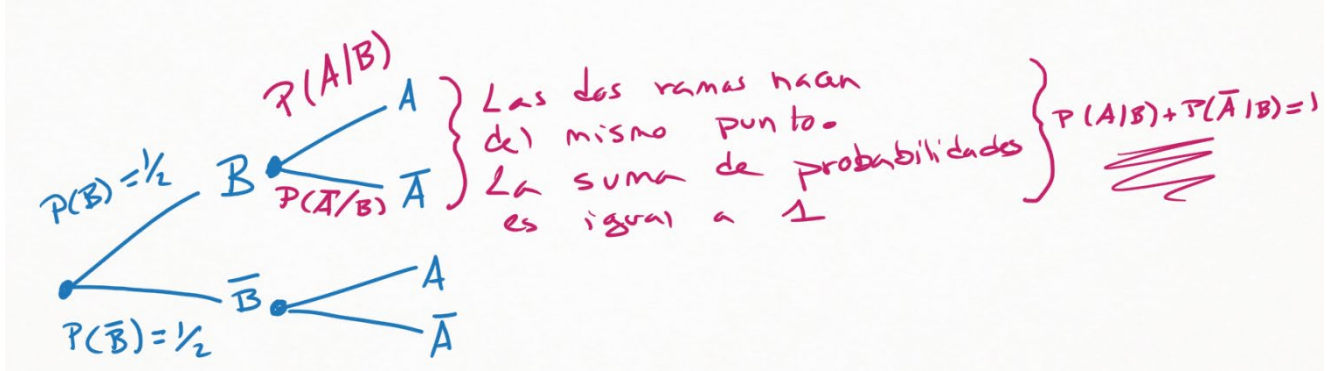 P(A/B)
A
P(B)=1/2
B
P(A̅/B)
A̅
Las dos ramas nacen
del mismo punto.
La suma de probabilidades
es igual a 1
P(A|B)+P(A̅|B)=1
B̅
P(B̅)=1/2
A
A̅